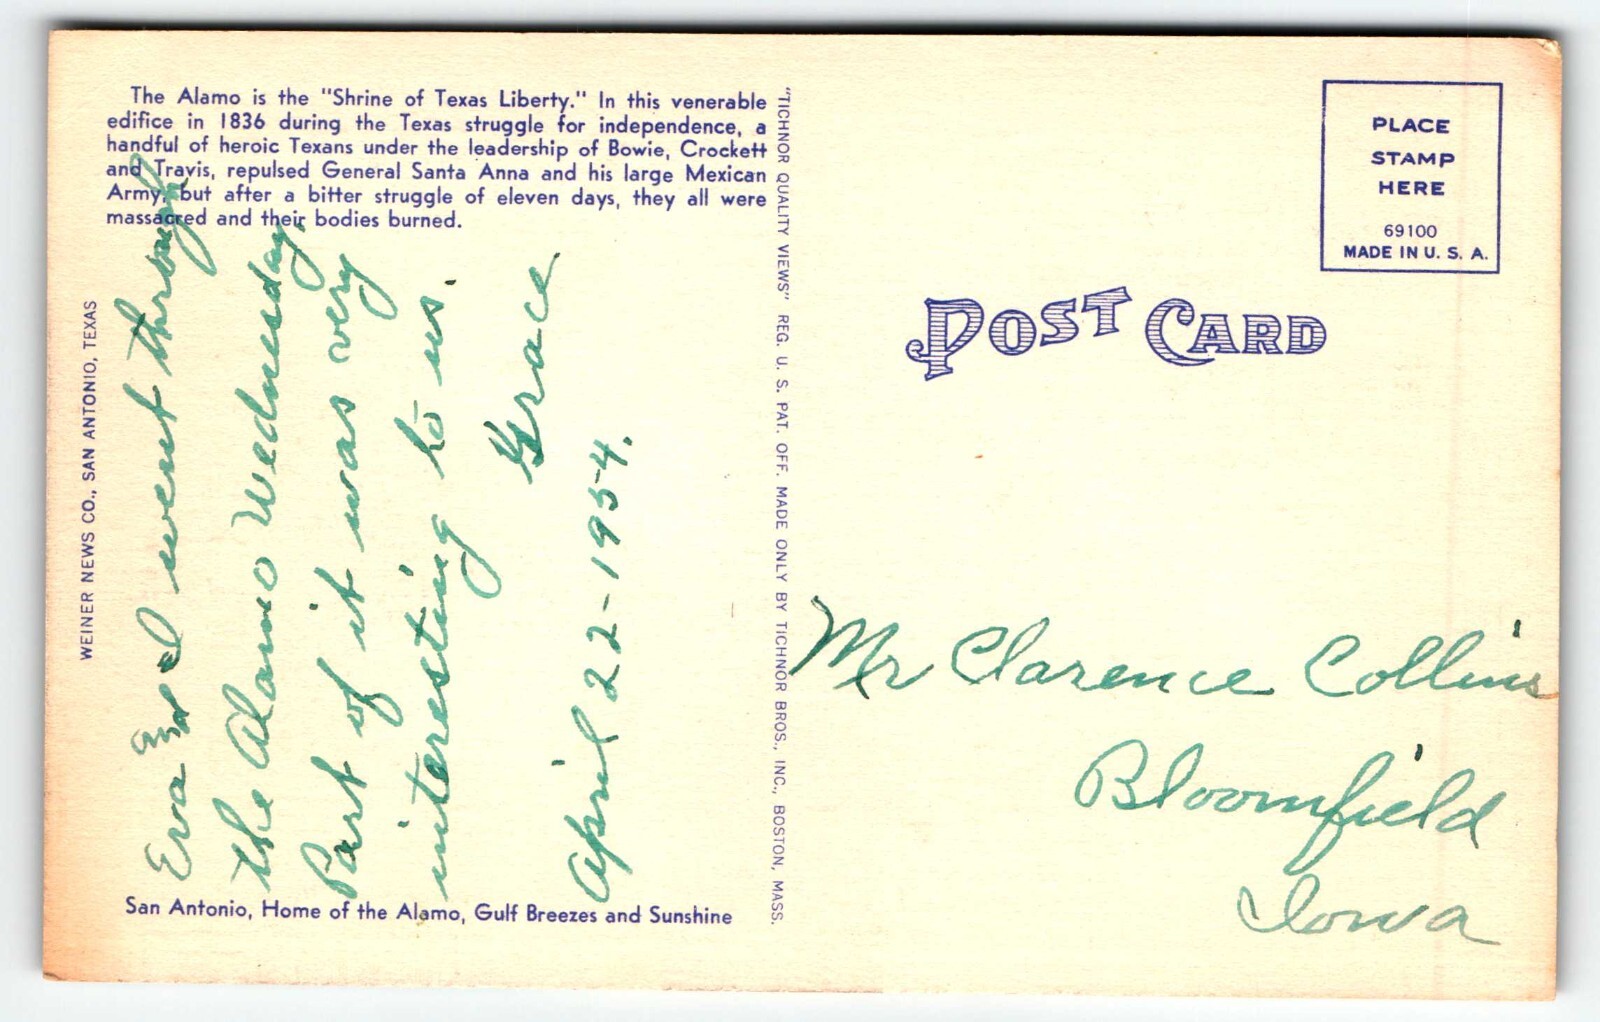 The Alamo is the "Shrine of Texas Liberty." In this venerable
edifice in 1836 during the Texas struggle for independence, a
handful of heroic Texans under the leadership of Bowie, Crockett
and Travis, repulsed General Santa Anna and his large Mexican
Army, but after a bitter struggle of eleven days, they all were
massacred and their bodies burned.
WEINER NEWS CO., SAN ANTONIO, TEXAS
Eva and I went through
the Alamo Wednesday.
Part of it was very
interesting to us.
Grace
April 22-1954.
San Antonio, Home of the Alamo, Gulf Breezes and Sunshine
"TICHNOR QUALITY VIEWS" REG. U. S. PAT. OFF. MADE ONLY BY TICHNOR BROS., INC., BOSTON, MASS.
PLACE
STAMP
HERE
69100
MADE IN U. S. A.
POST CARD
Mr Clarence Collins
Bloomfield
Iowa